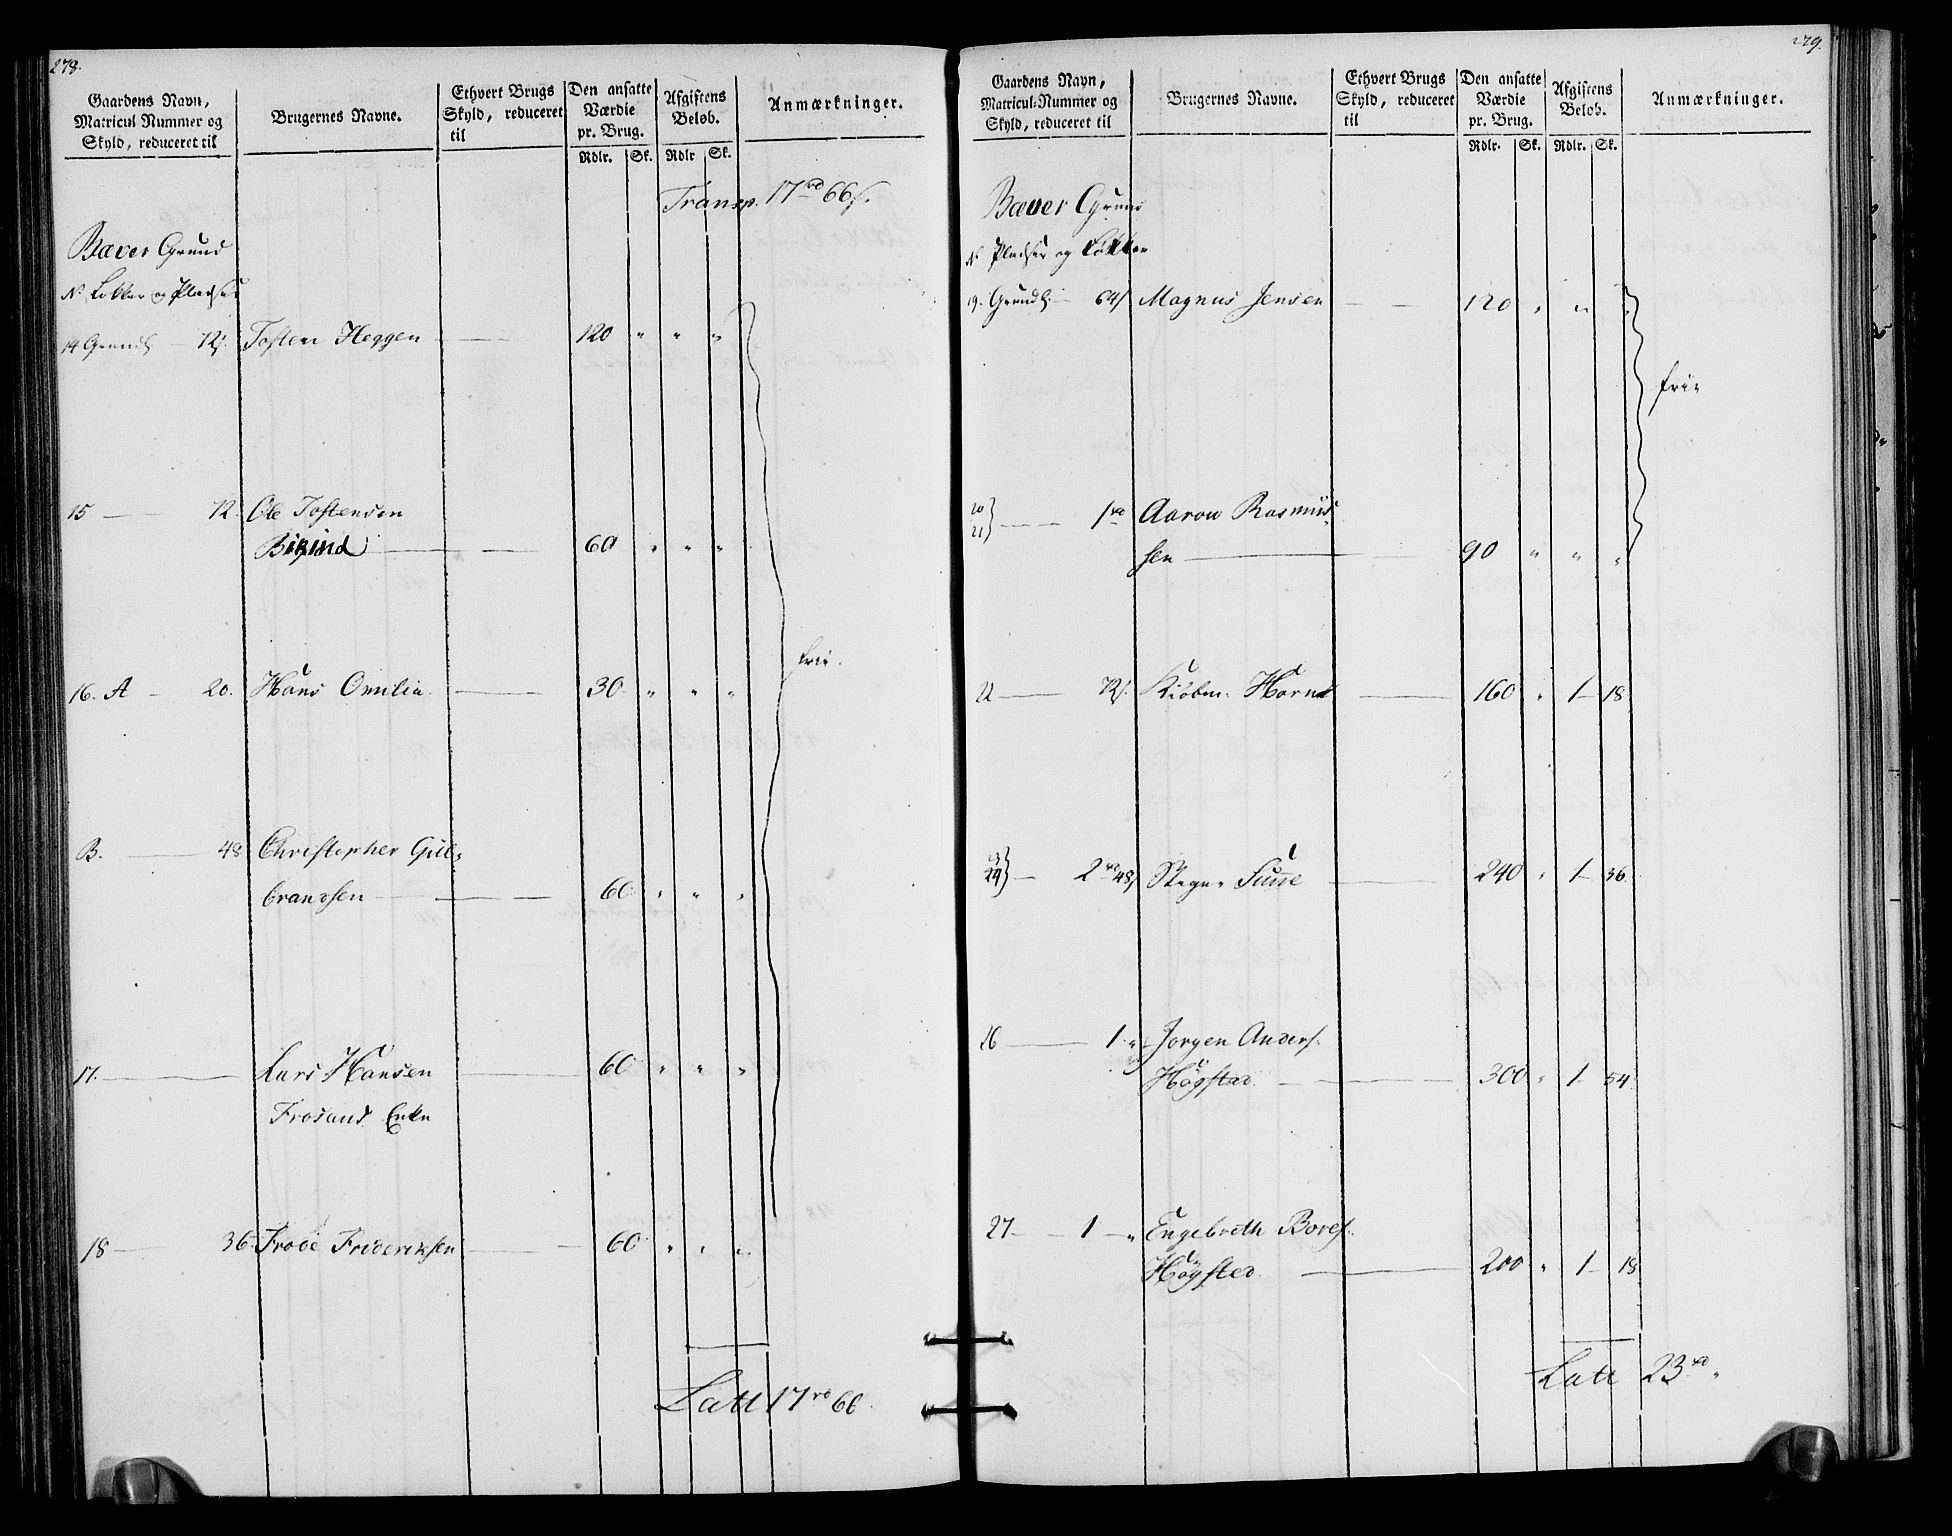 278.
Gaardens Navn, Matricul Nummer og Skyld, reduceret til
Brugernes Navne.
Ethvert Brugs Skyld, reduceret til
Den ansatte Værdie pr. Brug.
Afgiftens Beløb.
Anmærkninger.
Rdlr. Sk. Rdlr Sk.
Transp. 17 rd 66 s.
Bæver Grund
No Løkker og Pladser
14 Grundl 72 s. Tosten Heggen 120 " " "
15 72. Ole Tostensen
60 " " "
16. A 20. Hans Omilia 30 " " "
frie.
B. 48 Christopher Gul-
brandsen 60 " " "
17. Lars Hansen 60 " " "
Frosand Enke
18 36 Frode Frideriksen 60 " " "
Latt 17 rd 66.
279.
Gaardens Navn, Matricul-Nummer og Skyld, reduceret til
Brugernes Navne.
Ethvert Brugs Skyld, reduceret til
Den ansatte Værdie pr. Brug.
Afgiftens Beløb.
Anmærkninger.
Rdlr. Sk. Rdlr. Sk.
Bæver Grund
No Pladser og Løkker
19. Grundl 64 s Magnus Jensen 120 " " "
frie
20
21 1 rd Aaron Rasmus-
sen 90 " " "
22 72 s. Kiøbm. Horne 160 " 1 18
24 2 rd 48 s 240 " 1 36.
26 1 " Jørgen Anders.
Høgstad 300 " 1 54
27 1 " Engebreth Bores.
Høgstad 200 " 1 18
Latt 23 rd "